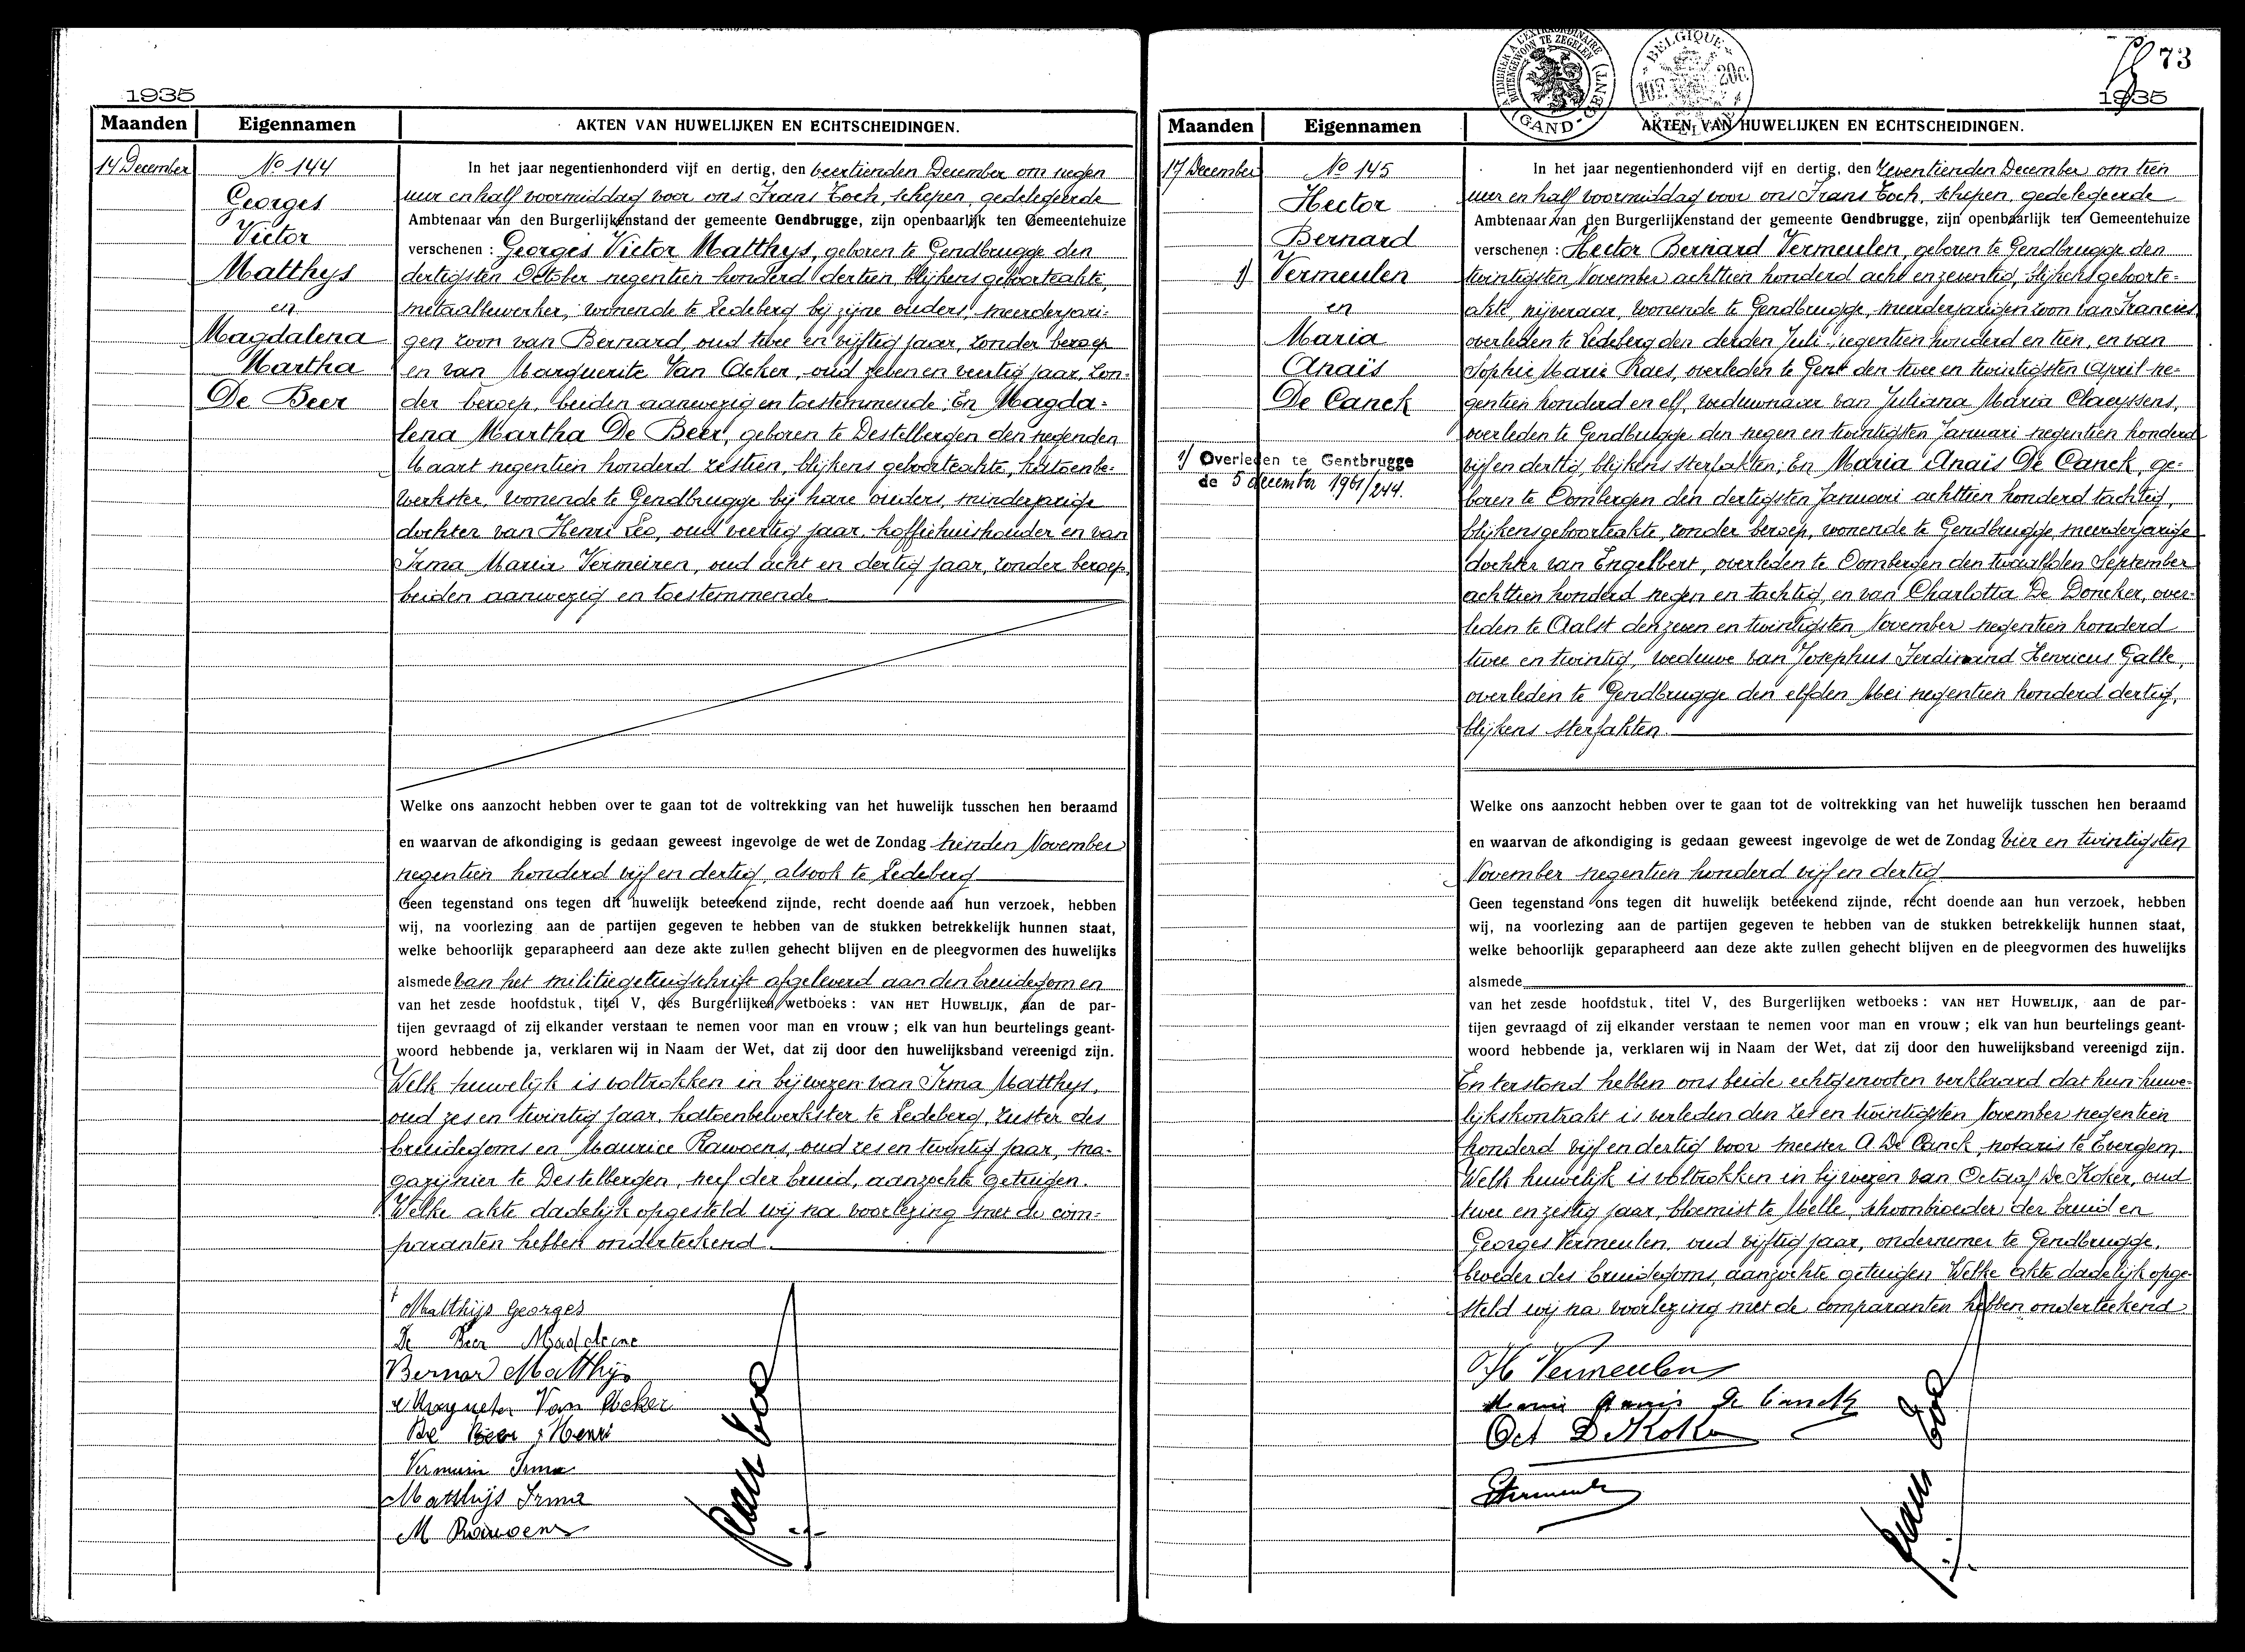 1935
Maanden Eigennamen AKTEN VAN HUWELIJKEN EN ECHTSCHEIDINGEN.
14 December
No 144
Georges
Victor
Matthys
en
Magdalena
Martha
De Beer
In het jaar negentienhonderd vijf en dertig, den veertienden December om negen
uur en half voormiddag voor ons Frans Toch, schepen, gedelegeerde
Ambtenaar van den Burgerlijkenstand der gemeente Gendbrugge, zijn openbaarlijk ten Gemeentehuize
verschenen : Georges Victor Matthys, geboren te Gendbrugge den
dertigsten October negentien honderd dertien, blijkens geboorteakte,
metaalbewerker, wonende te Ledeberg bij zijne ouders, meerderjari-
gen zoon van Bernard, oud twee en vijftig jaar, zonder beroep
en van Marguerite Van Acker, oud zeven en veertig jaar, zon-
der beroep, beiden aanwezig en toestemmende; En Magda-
lena Martha De Beer, geboren te Destelbergen den negenden
Maart negentien honderd zestien, blijkens geboorteakte, katoenbe-
werkster, wonende te Gendbrugge bij hare ouders, minderjarige
dochter van Henri Leo, oud veertig jaar, koffiehuishouder en van
Irma Maria Vermeiren, oud acht en dertig jaar, zonder beroep,
beiden aanwezig en toestemmende
Welke ons aanzocht hebben over te gaan tot de voltrekking van het huwelijk tusschen hen beraamd
en waarvan de afkondiging is gedaan geweest ingevolge de wet de Zondag tienden November
negentien honderd vijf en dertig, alsook te Ledeberg
Geen tegenstand ons tegen dit huwelijk beteekend zijnde, recht doende aan hun verzoek, hebben
wij, na voorlezing aan de partijen gegeven te hebben van de stukken betrekkelijk hunnen staat,
welke behoorlijk geparapheerd aan deze akte zullen gehecht blijven en de pleegvormen des huwelijks
alsmede van het militiegetuigschrift afgeleverd aan den bruidegom en
van het zesde hoofdstuk, titel V, des Burgerlijken wetboeks : VAN HET HUWELIJK, aan de par-
tijen gevraagd of zij elkander verstaan te nemen voor man en vrouw ; elk van hun beurtelings geant-
woord hebbende ja, verklaren wij in Naam der Wet, dat zij door den huwelijksband vereenigd zijn.
Welk huwelijk is voltrokken in bijwezen van Irma Matthys,
oud zes en twintig jaar, katoenbewerkster te Ledeberg, zuster des
bruidegoms en Maurice Rawoens, oud zes en twintig jaar, ma-
gazijnier te Destelbergen, neef der bruid, aanzochte getuigen.
Welke akte dadelijk opgesteld wij na voorlezing met de com-
paranten hebben onderteekend.
Matthijs Georges
De Beer Madeleine
Bernar Matthijs
Van Acker
De Beer Henri
Irma
Matthijs Irma
M Rawoens
73
1935
Maanden Eigennamen AKTEN VAN HUWELIJKEN EN ECHTSCHEIDINGEN.
17 December
No 145
Hector
Bernard
1) Vermeulen
en
Maria
Anaïs
De Canck
1) Overleden te Gentbrugge
de 5 december 1961/244.
In het jaar negentienhonderd vijf en dertig, den zeventienden December om tien
uur en half voormiddag voor ons Frans Toch, schepen, gedelegeerde
Ambtenaar van den Burgerlijkenstand der gemeente Gendbrugge, zijn openbaarlijk ten Gemeentehuize
verschenen : Hector Bernard Vermeulen, geboren te Gendbrugge den
twintigsten November achttien honderd acht en zeventig, blijkens geboorte-
akte, nijveraar, wonende te Gendbrugge, meerderjarigen zoon van Francies
overleden te Ledeberg den derden Juli negentien honderd en tien, en van
Sophie Marie Raes, overleden te Gent den twee en twintigsten April ne-
gentien honderd en elf, weduwnaar van Juliana Maria Claeyssens,
overleden te Gendbrugge den negen en twintigsten Januari negentien honderd
vijf en dertig, blijkens sterfakten; En Maria Anaïs De Canck, ge-
boren te Oombergen den dertigsten Januari achttien honderd tachtig,
blijkens geboorteakte, zonder beroep, wonende te Gendbrugge, meerderjarige
dochter van Engelbert, overleden te Oombergen den twaalfden September
achttien honderd negen en tachtig, en van Charlotta De Doncker, over-
leden te Aalst den zeven en twintigsten November negentien honderd
twee en twintig, weduwe van Josephus Ferdinand Henricus Galle,
overleden te Gendbrugge den elfden Mei negentien honderd dertig,
blijkens sterfakten.
Welke ons aanzocht hebben over te gaan tot de voltrekking van het huwelijk tusschen hen beraamd
en waarvan de afkondiging is gedaan geweest ingevolge de wet de Zondag vier en twintigsten
November negentien honderd vijf en dertig
Geen tegenstand ons tegen dit huwelijk beteekend zijnde, recht doende aan hun verzoek, hebben
wij, na voorlezing aan de partijen gegeven te hebben van de stukken betrekkelijk hunnen staat,
welke behoorlijk geparapheerd aan deze akte zullen gehecht blijven en de pleegvormen des huwelijks
alsmede
van het zesde hoofdstuk, titel V, des Burgerlijken wetboeks : VAN HET HUWELIJK, aan de par-
tijen gevraagd of zij elkander verstaan te nemen voor man en vrouw ; elk van hun beurtelings geant-
woord hebbende ja, verklaren wij in Naam der Wet, dat zij door den huwelijksband vereenigd zijn.
En terstond hebben ons beide echtgenooten verklaard dat hun huwe-
lijkskontrakt is verleden den zes en twintigsten November negentien
honderd vijf en dertig voor meester A. De Canck, notaris te Evergem.
Welk huwelijk is voltrokken in bijwezen van Octaaf De Koker, oud
twee en zestig jaar, bloemist te Melle, schoonbroeder der bruid en
Georges Vermeulen, oud vijftig jaar, ondernemer te Gendbrugge,
broeder des bruidegoms, aanzochte getuigen. Welke akte dadelijk opge-
steld wij na voorlezing met de comparanten hebben onderteekend
H Vermeulen
Maria Anais De Canck
Oct De Koker